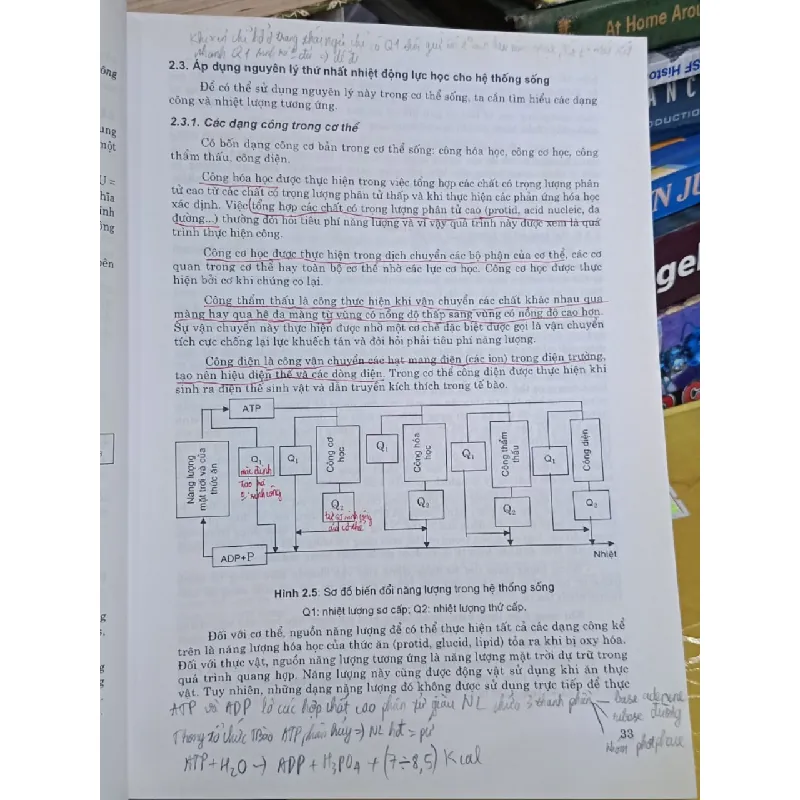 2.3. Áp dụng nguyên lý thứ nhất nhiệt động lực học cho hệ thống sống
Để có thể sử dụng nguyên lý này trong cơ thể sống, ta cần tìm hiểu các dạng
công và nhiệt lượng tương ứng.
2.3.1. Các dạng công trong cơ thể
Có bốn dạng công cơ bản trong cơ thể sống: công hóa học, công cơ học, công
thẩm thấu, công điện.
Công hóa học được thực hiện trong việc tổng hợp các chất có trọng lượng phân
tử cao từ các chất có trọng lượng phân tử thấp và khi thực hiện các phản ứng hóa học
xác định. Việc tổng hợp các chất có trọng lượng phân tử cao (protid, acid nucleic, đa
đường...) thường đòi hỏi tiêu phí năng lượng và vì vậy quá trình này được xem là quá
trình thực hiện công.
Công cơ học được thực hiện trong dịch chuyển các bộ phận của cơ thể, các cơ
quan trong cơ thể hay toàn bộ cơ thể nhờ các lực cơ học. Công cơ học được thực
hiện bởi cơ khi chúng co lại.
Công thẩm thấu là công thực hiện khi vận chuyển các chất khác nhau qua
màng hay qua hệ đa màng từ vùng có nồng độ thấp sang vùng có nồng độ cao hơn.
Sự vận chuyển này thực hiện được nhờ một cơ chế đặc biệt được gọi là vận chuyển
tích cực chống lại lực khuếch tán và đòi hỏi phải tiêu phí năng lượng.
Công điện là công vận chuyển các hạt mang điện (các ion) trong điện trường,
tạo nên hiệu điện thế và các dòng điện. Trong cơ thể công điện được thực hiện khi
sinh ra điện thế sinh vật và dẫn truyền kích thích trong tế bào.
ATP
Năng lượng
mặt trời và của
thức ăn
Q1
Q1
Công cơ
học
Q2
Q1
Công hóa
học
Q2
Q1
Công thẩm
thấu
Q2
Q1
Công điện
Q2
ADP+P
Nhiệt
Hình 2.5. Sơ đồ biến đổi năng lượng trong hệ thống sống
Q1: nhiệt lượng sơ cấp; Q2: nhiệt lượng thứ cấp.
Đối với cơ thể, nguồn năng lượng để có thể thực hiện tất cả các dạng công kể
trên là năng lượng hóa học của thức ăn (protid, glucid, lipid) tỏa ra khi bị oxy hóa.
Đối với thực vật, nguồn năng lượng tương ứng là năng lượng mặt trời dự trữ trong
quá trình quang hợp. Năng lượng này cũng được động vật sử dụng khi ăn thực
vật. Tuy nhiên, những dạng năng lượng đó không được sử dụng trực tiếp để thực
ATP và ADP là các hợp chất cao phân tử giàu NL chứa 3 thành phần
base adenine
ribose đường
Nhóm photphate
33
ATP + H2O → ADP + H3PO4 + (7÷8,5) Kcal
At Home Arou